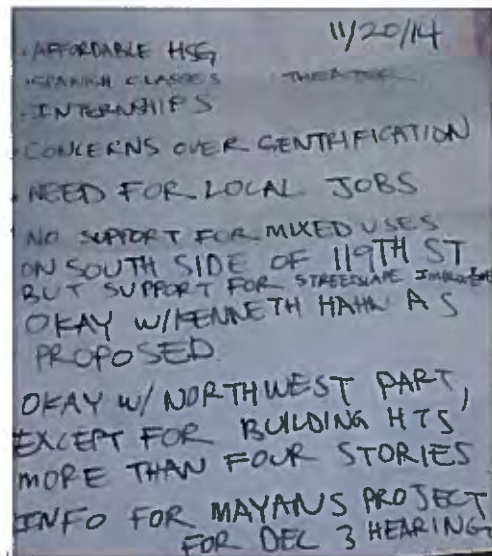 11/20/14
• AFFORDABLE HSG
• SPANISH CLASSES THEATER
• INTERNSHIPS
• CONCERNS OVER GENTRIFICATION
• NEED FOR LOCAL JOBS
NO SUPPORT FOR MIXED USES
ON SOUTH SIDE OF 119TH ST
BUT SUPPORT FOR STREETSCAPE
OKAY W/KENNETH HAHN AS
PROPOSED
OKAY W/ NORTHWEST PART,
EXCEPT FOR BUILDING HTS
MORE THAN FOUR STORIES
INFO FOR MAYANS PROJECT
FOR DEC 3 HEARING